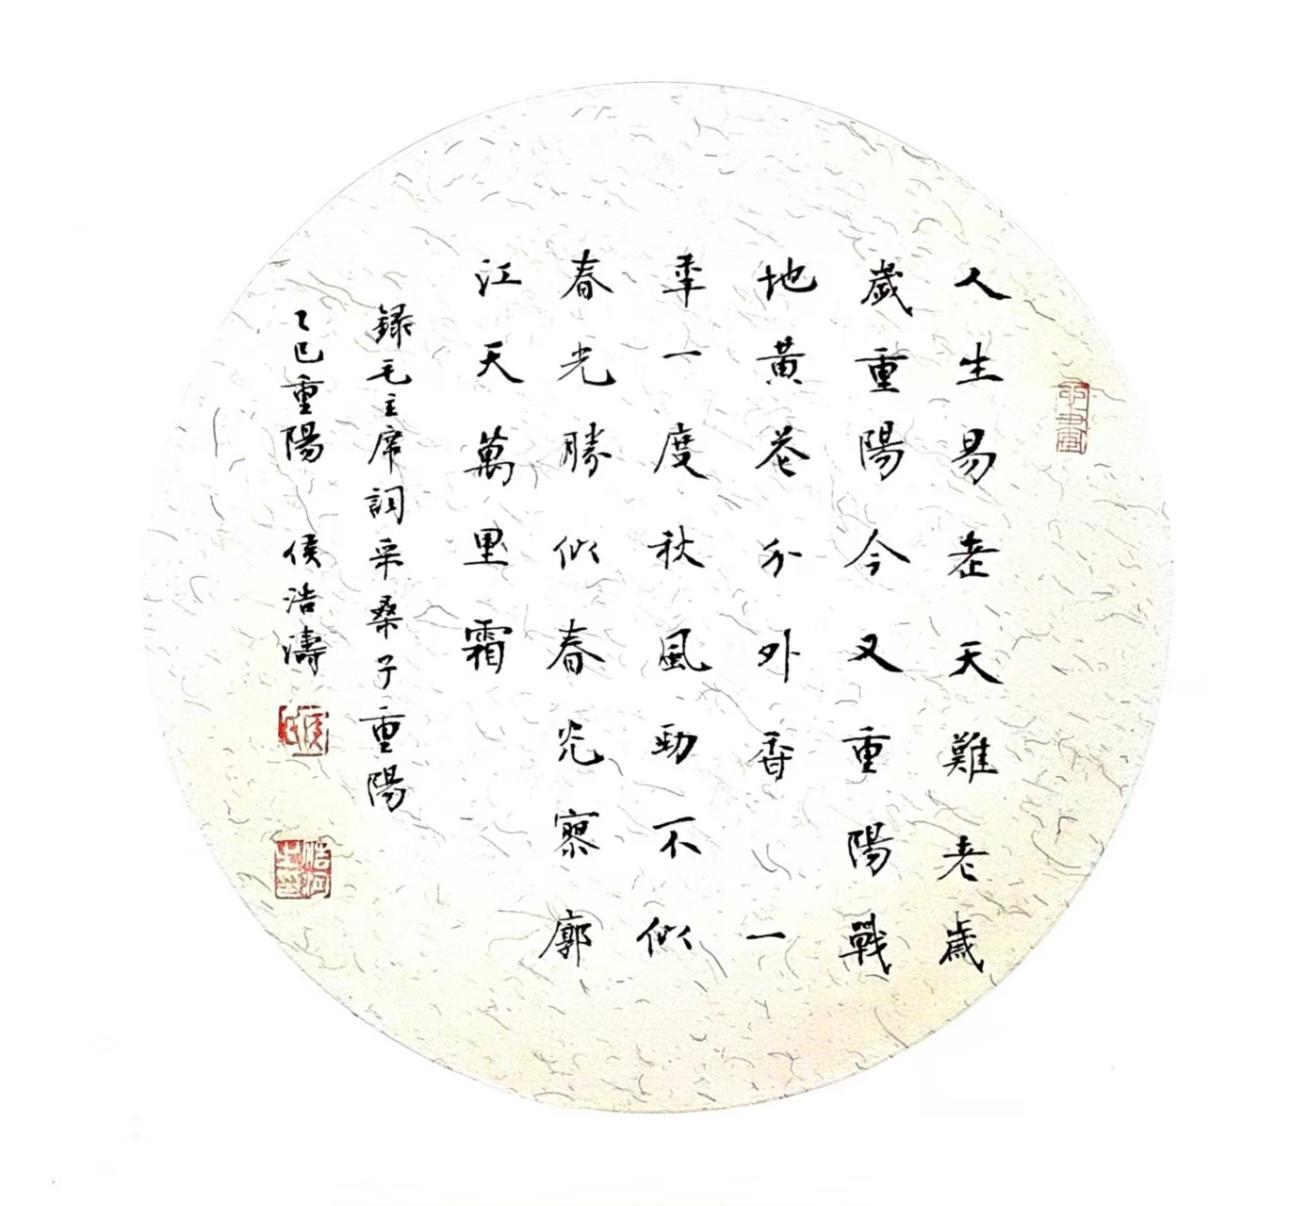 人生易老天難老歲
歲重陽今又重陽戰
地黃花分外香一
秊一度秋風勁不似
春光勝似春光寥廓
江天萬里霜
録毛主席詞采桑子重陽
乙巳重陽 侯浩濤